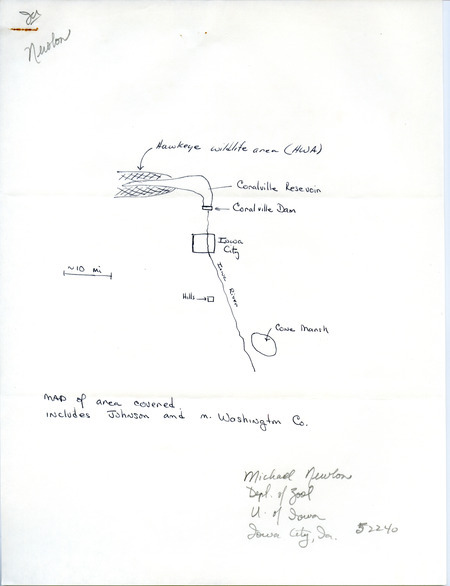 Newlon
Hawkeye wildlife area (HWA)
Coralville Reservoir
Coralville Dam
Iowa
City
Iowa River
~10 mi
Hills
Cone Marsh
MAP of area covered
includes Johnson and n. Washington Co.
Michael Newlon
Dept. of Zool
U. of Iowa
Iowa City, Ia. 52240